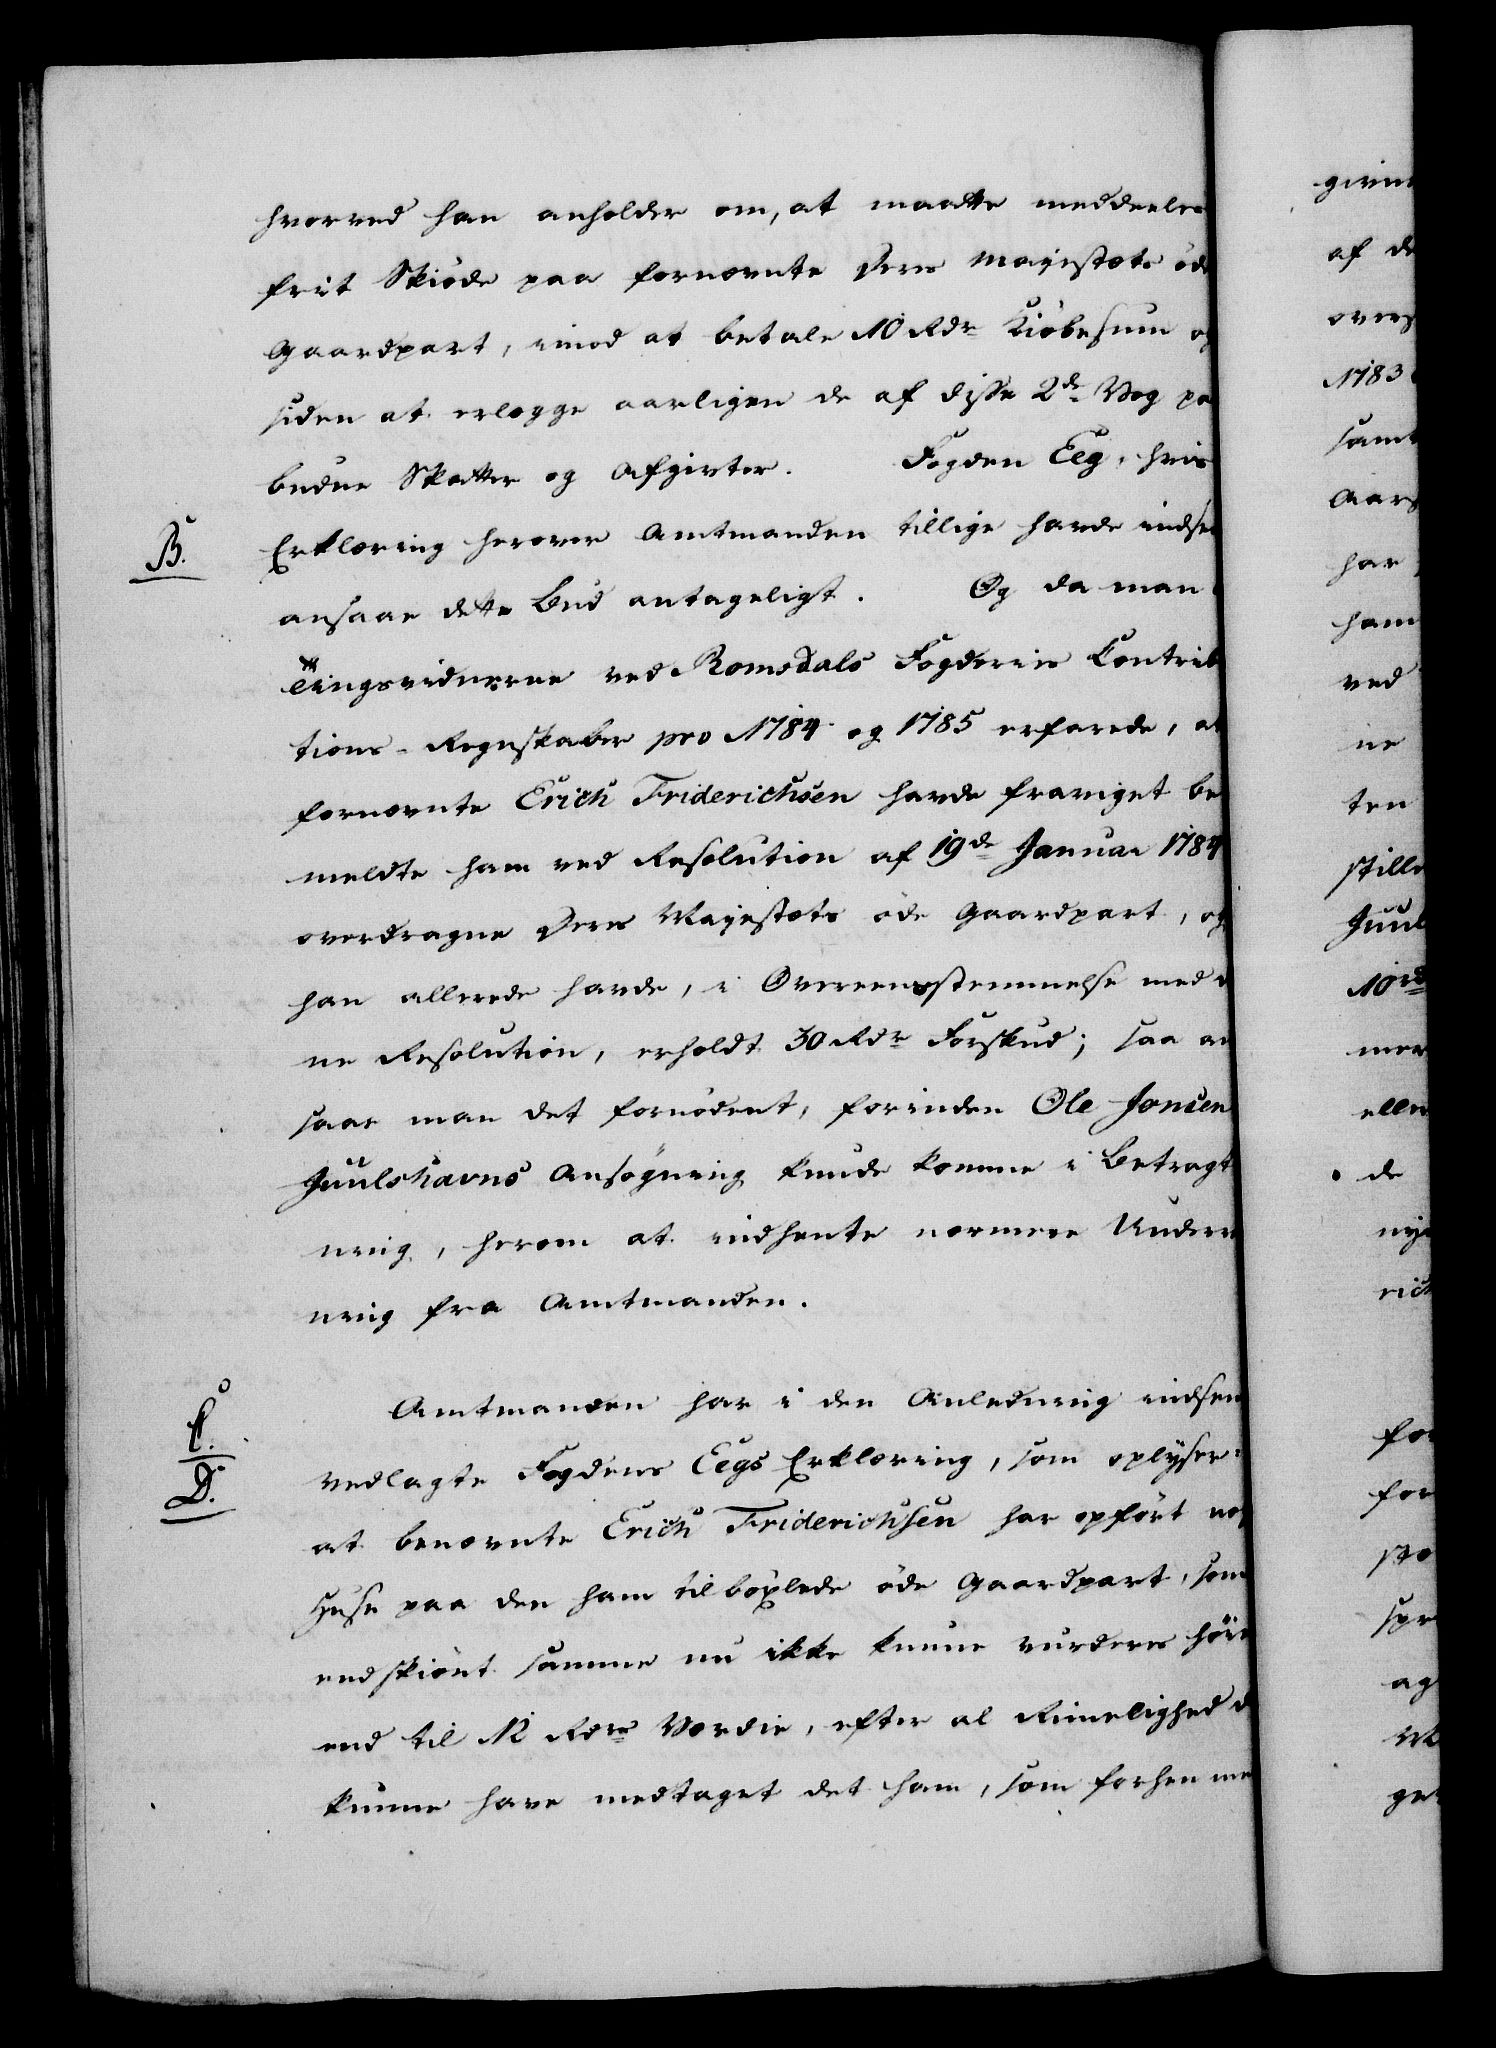 hvorved han anholder om, at maatte meddeeles
friit Skiøde paa fornævnte Deres Majestæts øde
Gaardpart, imod at betale 10 Rdr Kiøbesum og
siden at erlægge aarligen de af disse 2de Vog pa
budne Skatter og Afgivter. Fogden Eeg, hvis
B. Erklæring herover Amtmanden tillige havde indse
ansaae dette Bud antageligt. Og da man
Tingsvidnerne ved Romsdals Fogderies Contribu
tions-Regnskaber pro 1784 og 1785 erfarede, at
fornævnte Erich Friderichsen havde fraviget be
meldte ham ved Resolution af 19de Januar 1784
overdragne Deres Majestæts øde Gaardpart, og
han allerede havde, i Overeensstemmelse med d
ne Resolution, erholdt 30 Rdr Forskud; saa an
saae man det fornødent, forinden Ole Jonsen
Juulshavns Ansøgning kunde komme i Betragt
ning, herom at indhente nærmere Underr
ning fra Amtmanden.
C. Amtmanden har i den Anledning indsen
D. vedlagte Fogdens Eegs Erklæring, som oplyser:
at benævnte Erich Friderichsen har opført nog
Huse paa den ham tilbøxlede øde Gaardpart, som
endskiønt samme nu ikke kunne vurderes høie
end til 12 Rdrs Værdie, efter al Rimelighed d
kunne have medtaget det ham, som forhen me
givne
af de
overs
1783
samt
Aars
har
ham
ved
ne
ten
stille
Juul
10rd
mer
elle
de
nye
rich
for
for
sto
spr
ag
ge